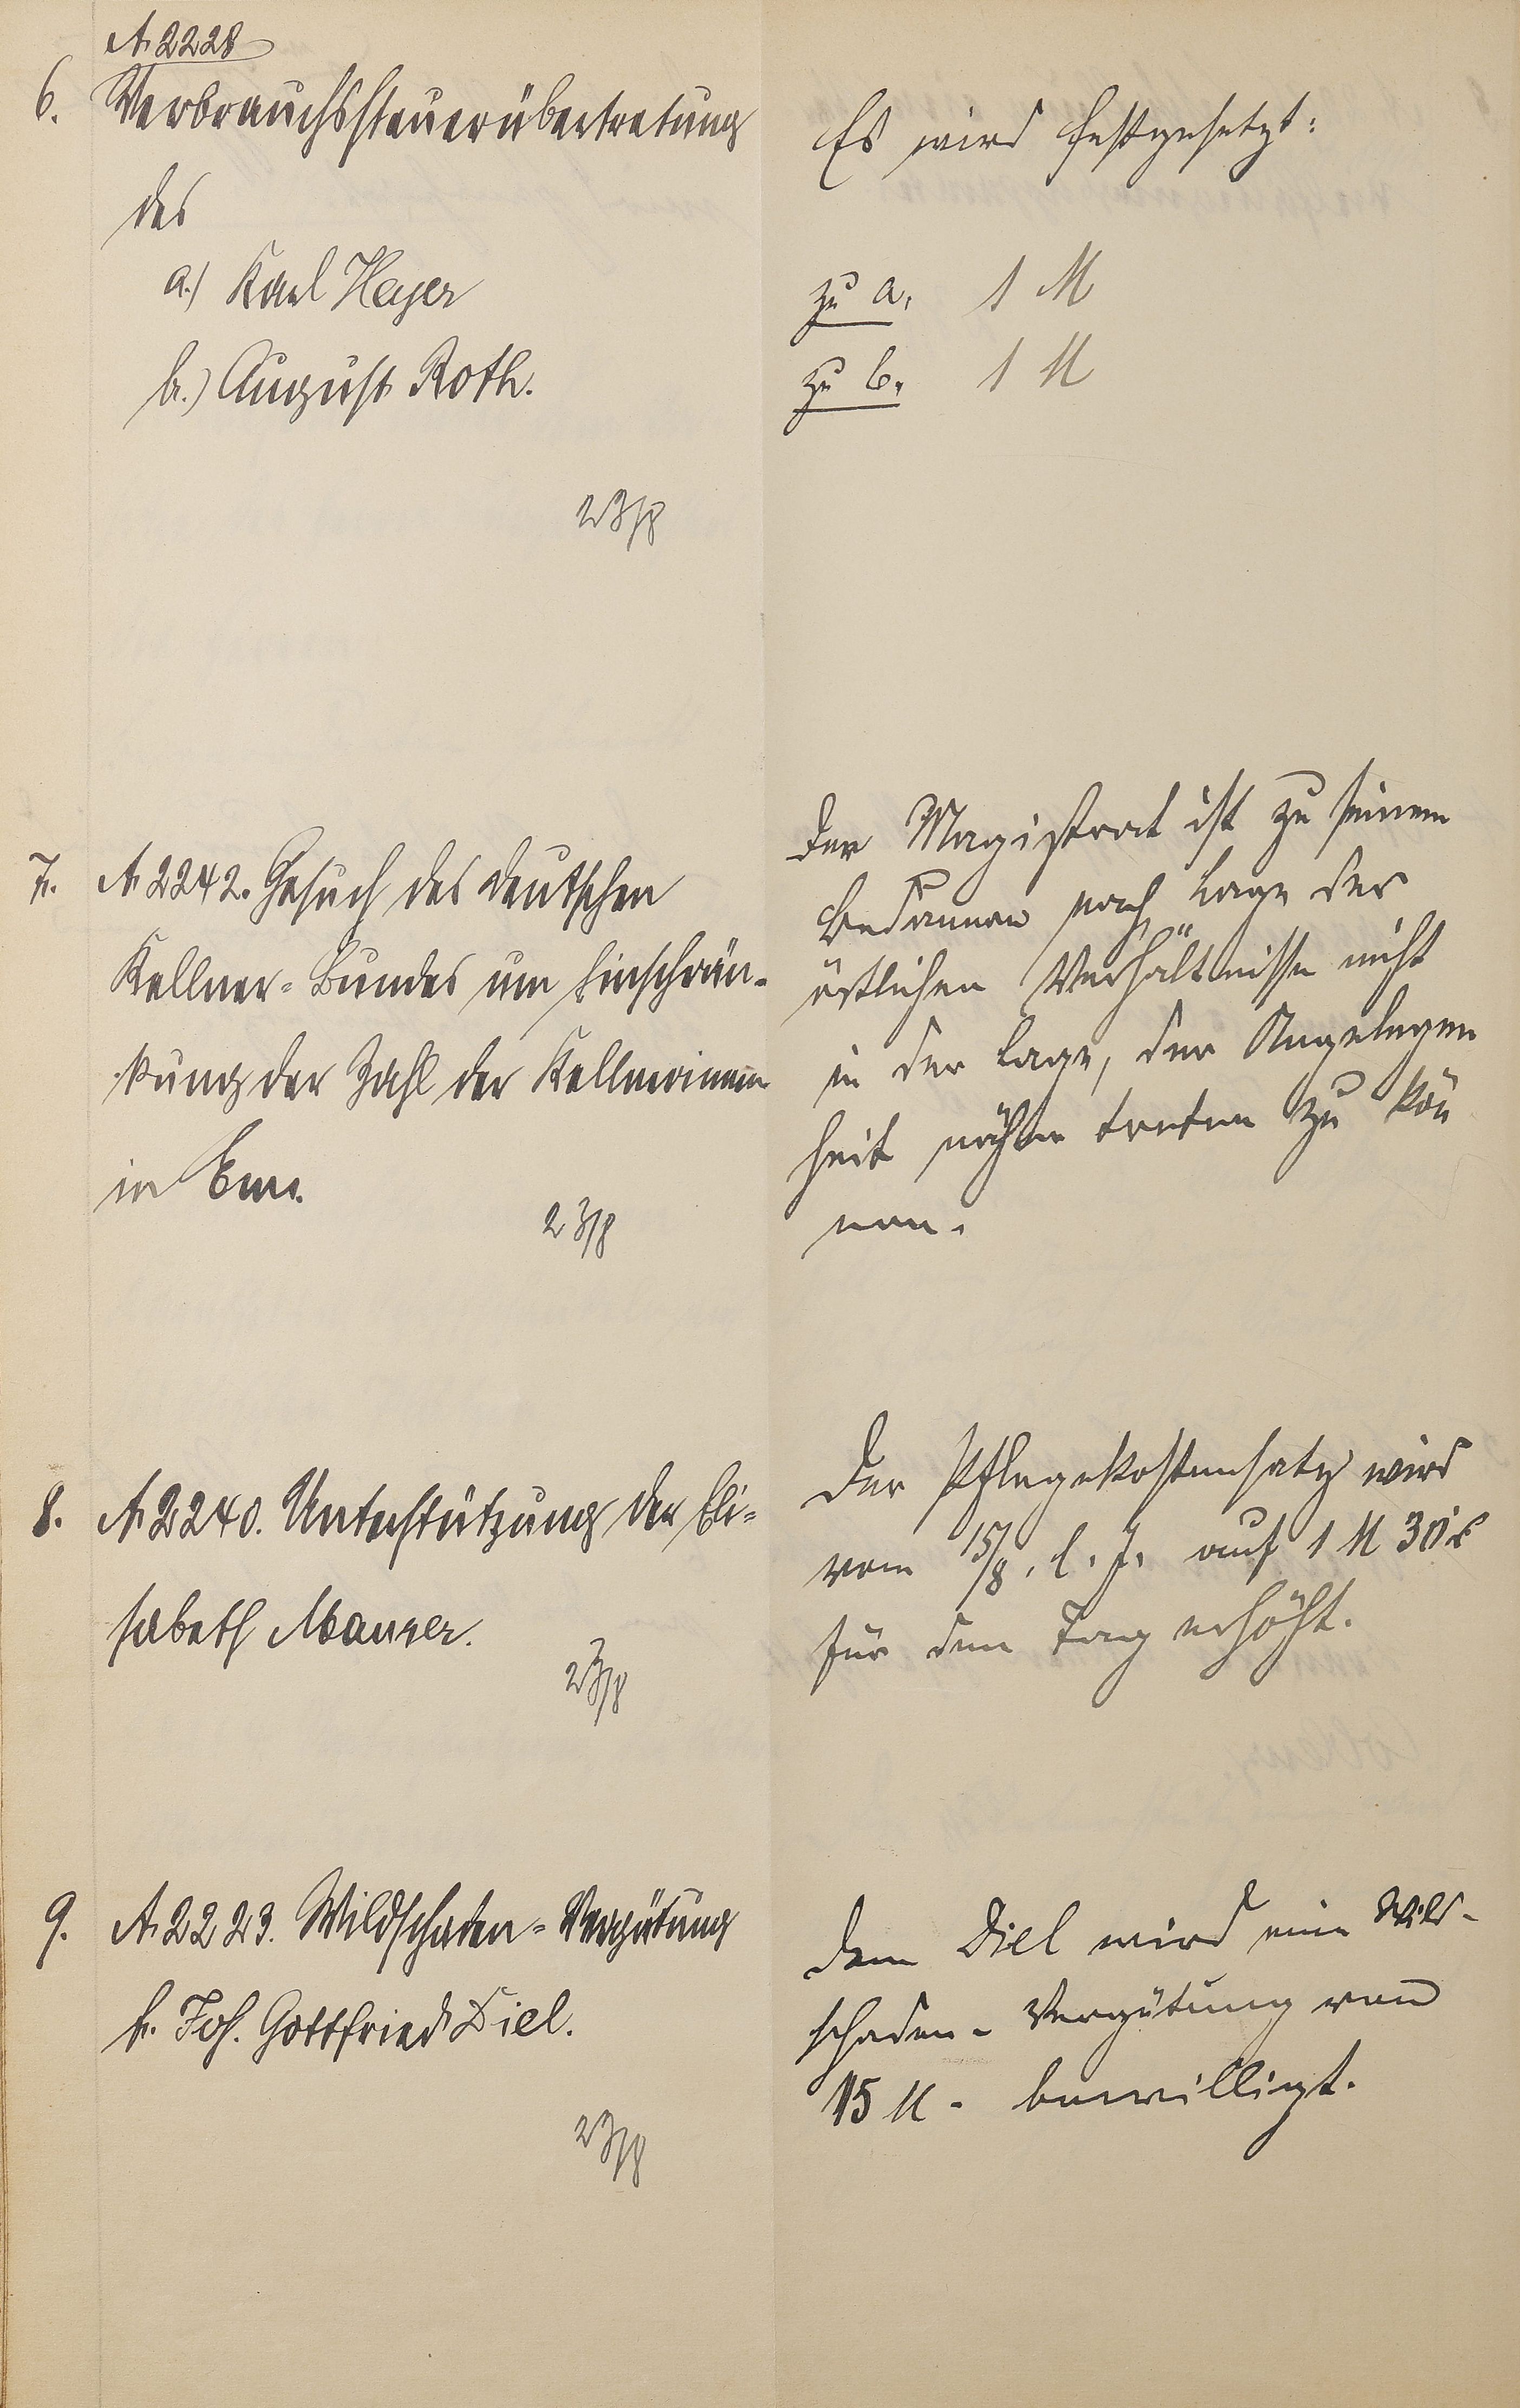 A. 2228
6. Verbrauchssteuerübertretung
des
a.) Karl Heyer
b.) August Roth.
23/8
Es wird festgesetzt:
zu a. 1 M
zu b. 1 M
7. A 2242. Gesuch des deutschen
Kellner-Bundes um Einschrän-
kung der Zahl der Kellnerinnen
in Ems.
23/8
Der Magistrat ist zu seinem
Bedauern nach Lage der
örtlichen Verhältnisse nicht
in der Lage, der Angelegen
heit näher treten zu kön̄
nen.
8. A 2240. Unterstützung der Eli-
sabeth Maurer.
23/8
Der Pflegekostensatz wird
vom 15/8. l. J. auf 1 M 30 ₰
für den Tag erhöht.
9. A. 2223. Wildschaden-Vergütung
f. Joh. Gottfried Diel.
23/8
Dem Diel wird eine Wild-
schaden-Vergütung von
15 M. bewilligt.